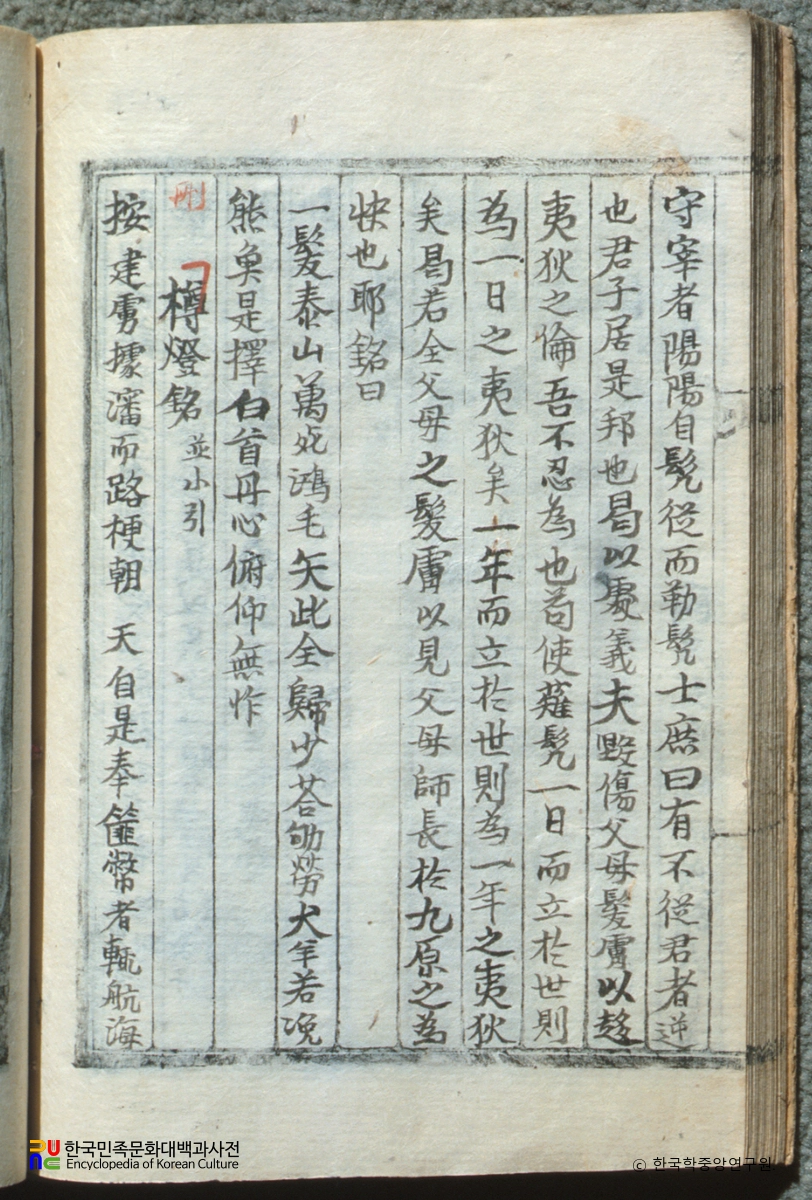 守宰者陽陽自髡從而勒髡士庶曰有不從君者逆
也君子居是邦也曷以處義夫毀傷父母髮膚以趍
夷狄之倫吾不忍為也苟使薙髡一日而立於世則
為一日之夷狄矣一年而立於世則為一年之夷狄
矣曷若全父母之髮膚以見父母師長於九原之為
快也耶銘曰
一髮泰山萬死鴻毛矢此全歸少荅劬勞犬羊若浼
熊魚是擇白首丹心俯仰無怍
刪
樽燈銘 並小引
按建虜據瀋而路梗朝 天自是奉篚幣者輒航海
한국민족문화대백과사전
Encyclopedia of Korean Culture
© 한국학중앙연구원